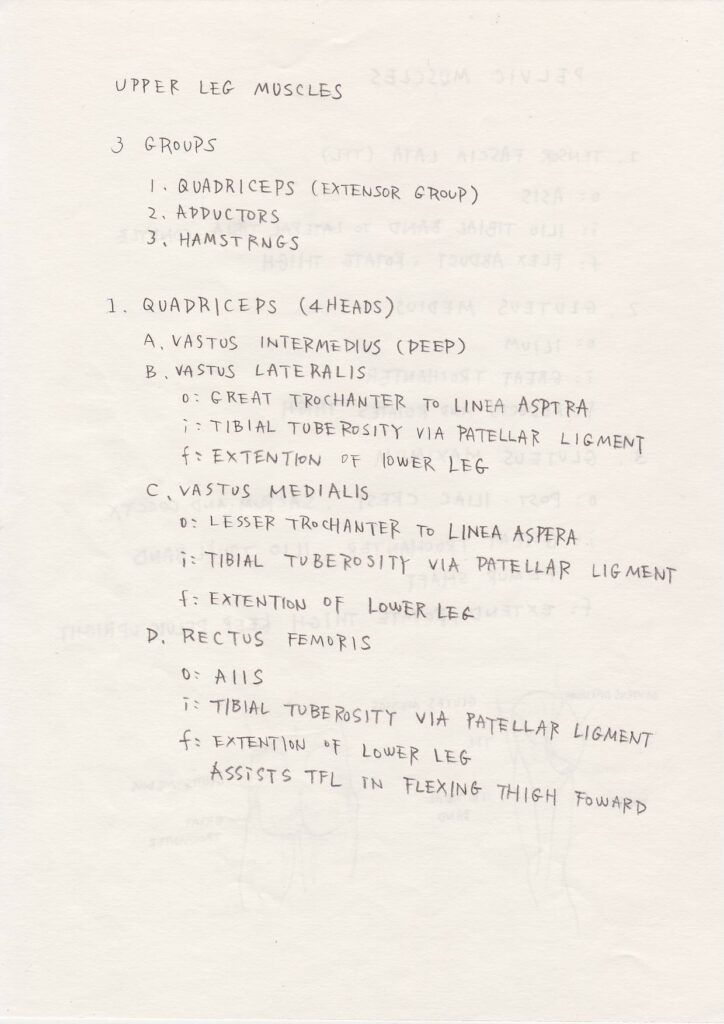 UPPER LEG MUSCLES
3 GROUPS
1. QUADRICEPS (EXTENSOR GROUP)
2. ADDUCTORS
3. HAMSTRNGS
1. QUADRICEPS (4 HEADS)
A. VASTUS INTERMEDIUS (DEEP)
B. VASTUS LATERALIS
o: GREAT TROCHANTER TO LINEA ASPTRA
i: TIBIAL TUBEROSITY VIA PATELLAR LIGMENT
f: EXTENTION OF LOWER LEG
C. VASTUS MEDIALIS
o: LESSER TROCHANTER TO LINEA ASPERA
i: TIBIAL TUBEROSITY VIA PATELLAR LIGMENT
f: EXTENTION OF LOWER LEG
D. RECTUS FEMORIS
o: AIIS
i: TIBIAL TUBEROSITY VIA PATELLAR LIGMENT
f: EXTENTION OF LOWER LEG
ASSISTS TFL IN FLEXING THIGH FOWARD